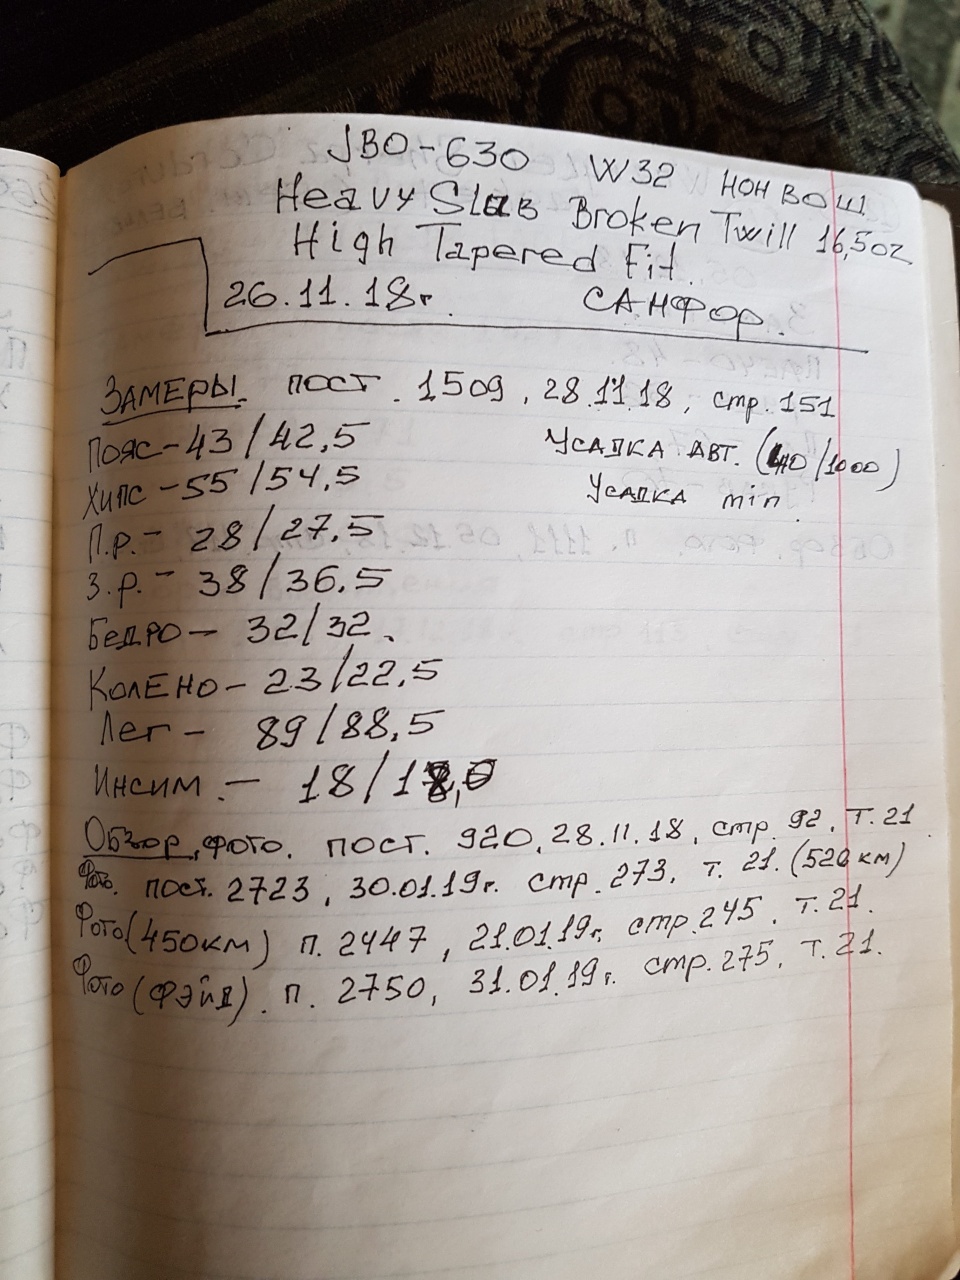 JBO-630 W32 НОН ВОШ
Heavy Slub Broken Twill 16,5oz
High Tapered Fit
26.11.18г. САНФОР.
ЗАМЕРЫ. ПОСТ. 1509, 28.11.18, стр. 151
ПОЯС - 43/42,5 УСАДКА АВТ. (40/1000)
ХИПС - 55/54,5 УСАДКА min.
П.р. - 28/27.5
З.р. - 38/36.5
БЕДРО - 32/32.
КОЛЕНО - 23/22,5
Лег - 89/88,5
ИНСИМ. - 18/18,0
Обзор, фото. пост. 920, 28.11.18, стр. 92, т. 21
Фото. пост. 2723, 30.01.19г. стр. 273, т. 21. (520 км)
Фото (450км) п. 2447, 21.01.19г, стр. 245, т. 21.
Фото (ФЭЙД). п. 2750, 31.01.19г. стр. 275, т. 21.